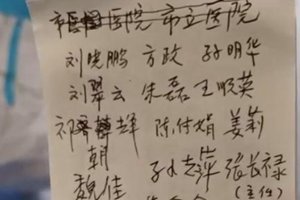 医院 市立医院
刘晓鹏 方政 孙明华
刘翠云 朱磊 王晓英
祁 辉 陈付娟 姜莉
朝 孙志萍 張长禄
魏佳 (主任)